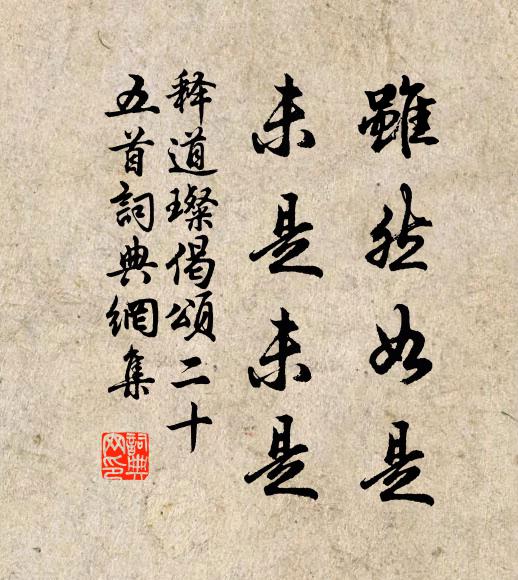 雖然如是
未是未是
释道璨偈頌二十
五首詞典網集
詞典
网印